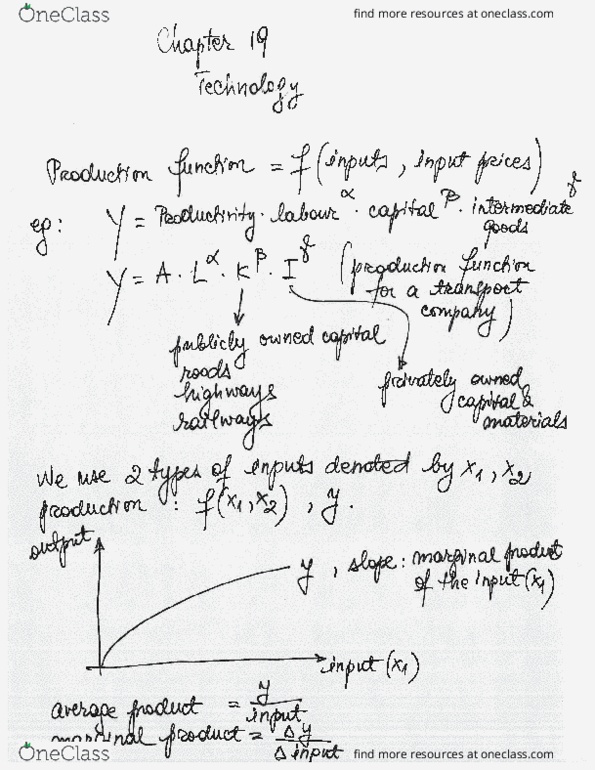 OneClass find more resources at oneclass.com
Chapter 19
Technology
Production function = f (inputs, input prices)
eg: Y = Productivity · labour^α · capital^β · intermediate goods^γ
Y = A · L^α · K^β · I^γ (production function for a transport company)
publicly owned capital
roads
highways
railways
privately owned
capital &
materials
We use 2 types of inputs denoted by x1, x2
production : f(x1, x2) , y.
output
y , slope: marginal product
of the input (x1)
input (x1)
average product = y / input
marginal product = Δy / Δ input
OneClass find more resources at oneclass.com